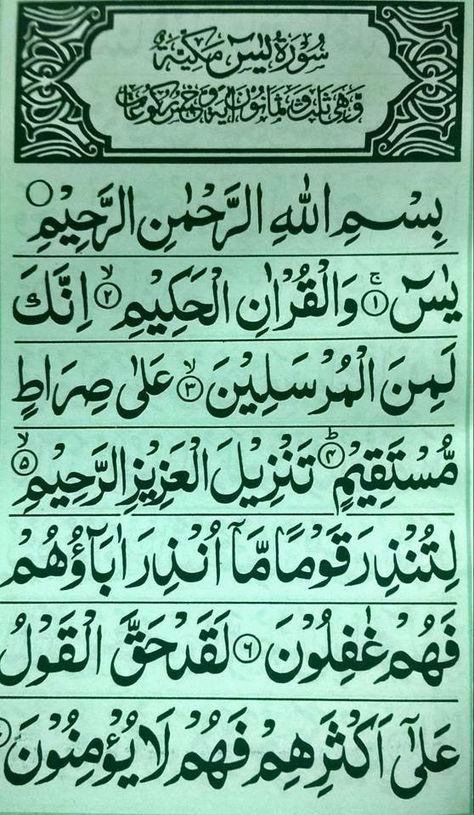 سُوْرَةُ يٰسٓ مَكِّيَّةٌ
وَهِىَ ثَلٰثٌ وَّثَمَانُوْنَ اٰيَةً وَّخَمْسُ رُكُوْعَاتٍ
بِسْمِ اللّٰهِ الرَّحْمٰنِ الرَّحِيْمِ
يٰسٓ ۚ﴿۱﴾ وَالْقُرْاٰنِ الْحَكِيْمِ ۙ﴿۲﴾ اِنَّكَ
لَمِنَ الْمُرْسَلِيْنَ ۙ﴿۳﴾ عَلٰى صِرَاطٍ
مُّسْتَقِيْمٍ ؕ﴿۴﴾ تَنْزِيْلَ الْعَزِيْزِ الرَّحِيْمِ ۙ﴿۵﴾
لِتُنْذِرَ قَوْمًا مَّاۤ اُنْذِرَ اٰبَآؤُهُمْ
فَهُمْ غٰفِلُوْنَ ﴿۶﴾ لَقَدْ حَقَّ الْقَوْلُ
عَلٰٓى اَكْثَرِهِمْ فَهُمْ لَا يُؤْمِنُوْنَ